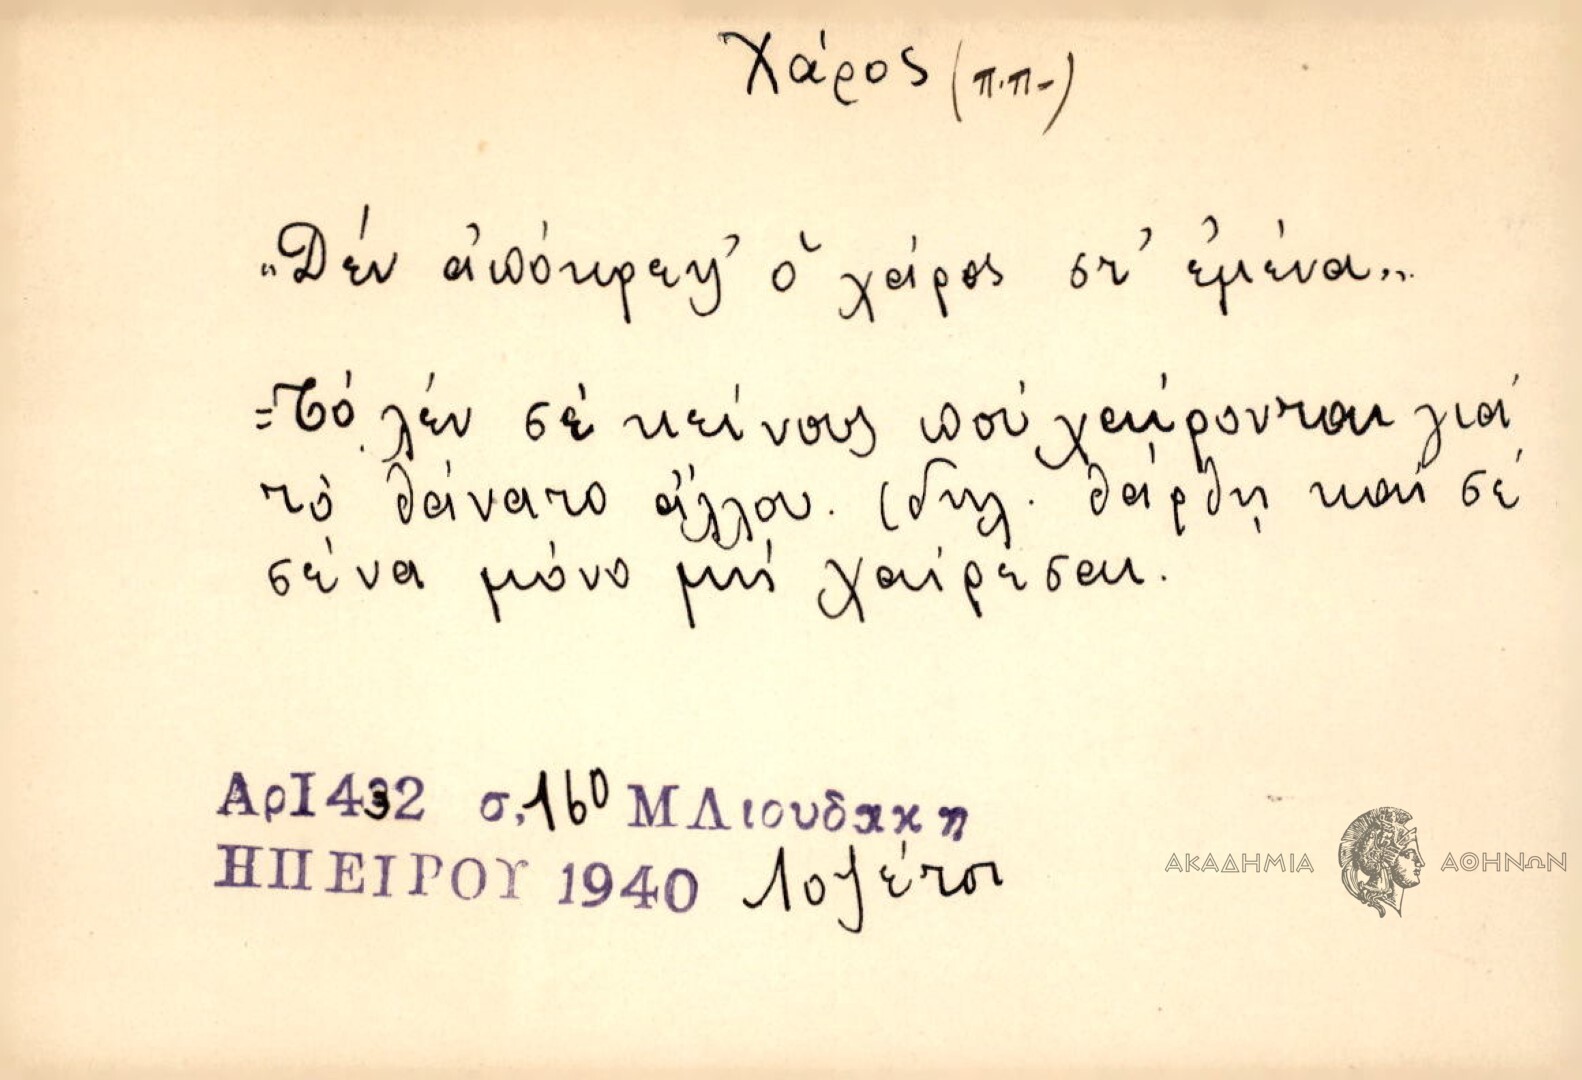 Χάρος (π.π-)
"Δέν ἀπόκρεψ' ὁ χάρος στ' ἐμένα".
=Τό λέν σέ κείνους πού χαίρονται γιά
τό θάνατο ἄλλου. (δηλ. θάρθῃ καί σέ
σένα μόνο μή χαίρεσαι.
Αρ1432 σ. 160 Μ Λιουδακη
ΗΠΕΙΡΟΥ 1940 Λοζέτσι
ΑΚΑΔΗΜΙΑ ΑΘΗΝΩΝ